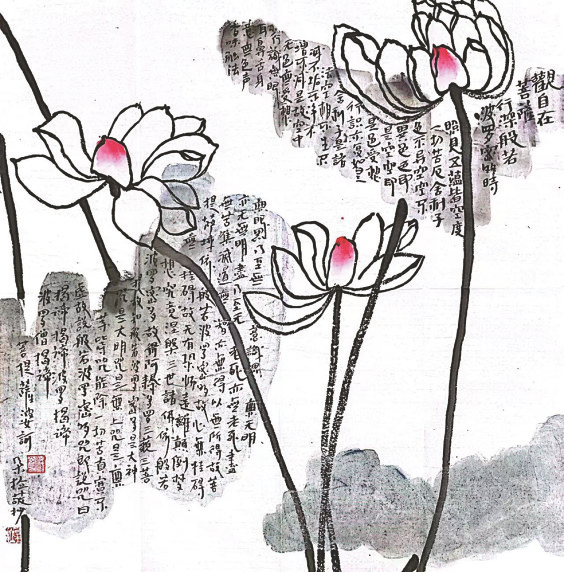 觀自在
菩薩
行深般若
波羅蜜多時
照見五蘊皆空度
一切苦厄舍利子
色不異空空不
異色色即
是空空即
是色受想
行識亦復如是
舍利子是諸
法空相不生不
無色無受想
行識無眼
耳鼻舌身
意無色声
香味触法
無眼界乃至無
意識界無无明
亦无無明盡乃至无
老死亦無老死盡
無苦集滅道無
智亦無得以無所得故菩
提薩埵依般若波羅蜜多故心無罣礙
無罣礙故无有恐怖遠離顛倒夢
想究竟涅槃三世諸佛依般若
波羅蜜多故得阿耨多羅三藐三菩
是大明咒是無上咒是無
等等咒能除一切苦真實不
虛故說般若波羅蜜多咒即說咒曰
揭諦揭諦波羅揭諦
波羅僧揭諦
菩提薩婆訶